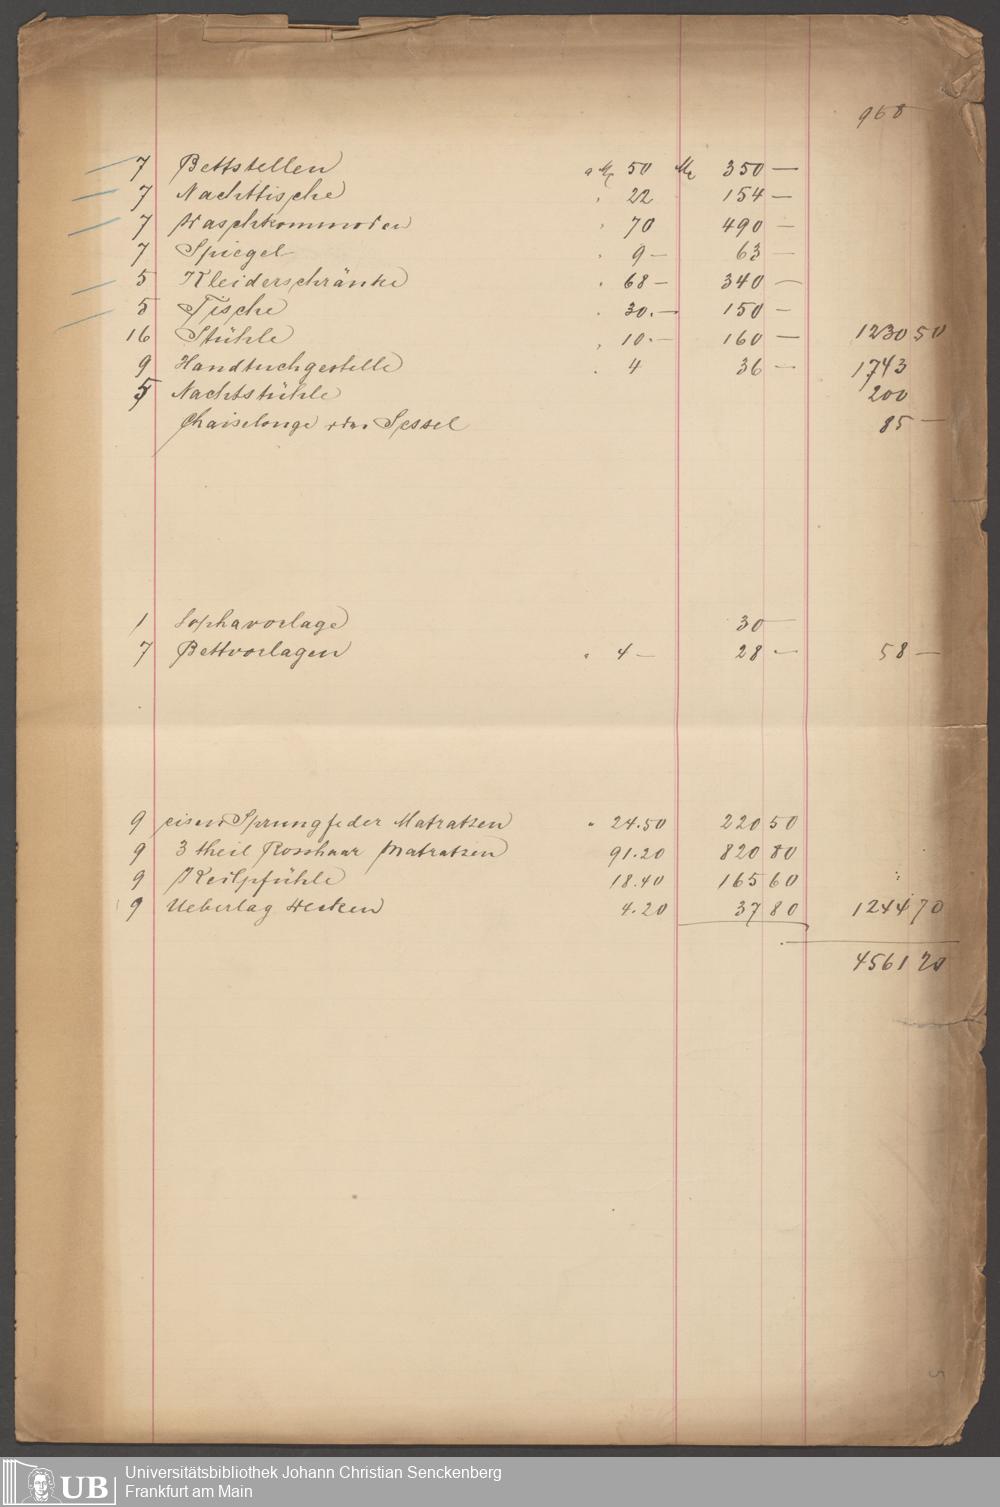 968
7 Bettstellen a M 50 M 350 —
7 Nachttische " 22 154 —
7 Waschkommoden " 70 490 —
7 Spiegel " 9 — 63 —
5 Kleiderschränke " 68 — 340 —
5 Tische " 30. — 150 —
16 Stühle " 10. — 160 — 1230 50
9 Handtuchgestelle " 4 36 — 1743
5 Nachtstühle 200
Chaiselonge oder Sessel 85 —
1 Sophavorlage 30 —
7 Bettvorlagen " 4 — 28 — 58 —
9 eisen Sprungfeder Matratzen " 24.50 220 50
9 3 theil Rosshaar Matratzen 91.20 820 80
9 Keilpfühle 18.40 165 60
9 Ueberlag Decken 4.20 37 80 1244 70
4561 20
5
UB Universitätsbibliothek Johann Christian Senckenberg
Frankfurt am Main